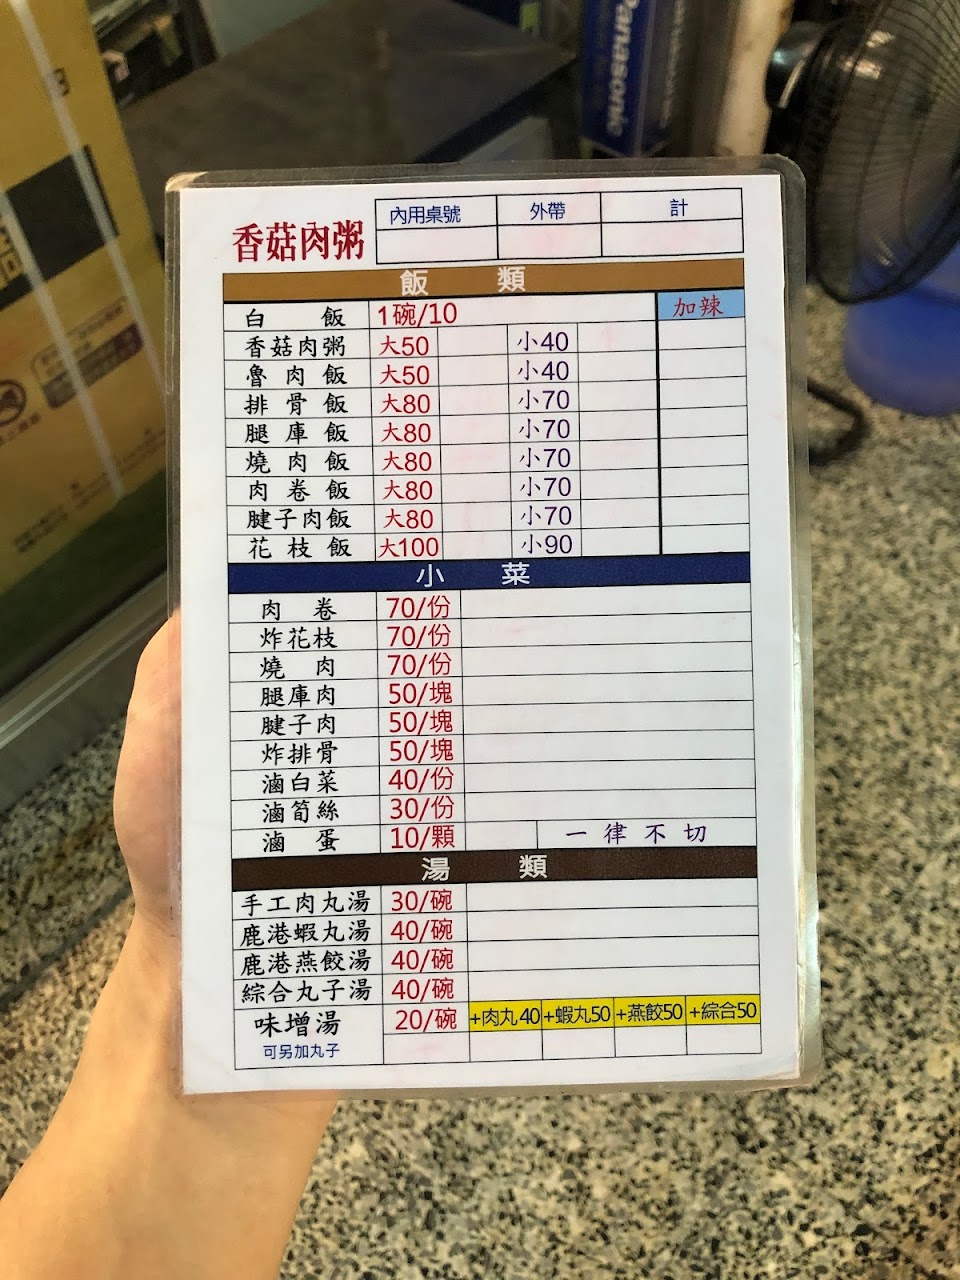 Panasonic
香菇肉粥 內用桌號 外帶 計
飯 類
白 飯 1碗/10 加辣
香菇肉粥 大50 小40
魯肉飯 大50 小40
排骨飯 大80 小70
腿庫飯 大80 小70
燒肉飯 大80 小70
肉卷飯 大80 小70
腱子肉飯 大80 小70
花枝飯 大100 小90
小 菜
肉 卷 70/份
炸花枝 70/份
燒 肉 70/份
腿庫肉 50/塊
腱子肉 50/塊
炸排骨 50/塊
滷白菜 40/份
滷筍絲 30/份
滷 蛋 10/顆 一律不切
湯 類
手工肉丸湯 30/碗
鹿港蝦丸湯 40/碗
鹿港燕餃湯 40/碗
綜合丸子湯 40/碗
味增湯 20/碗 +肉丸40 +蝦丸50 +燕餃50 +綜合50
可另加丸子